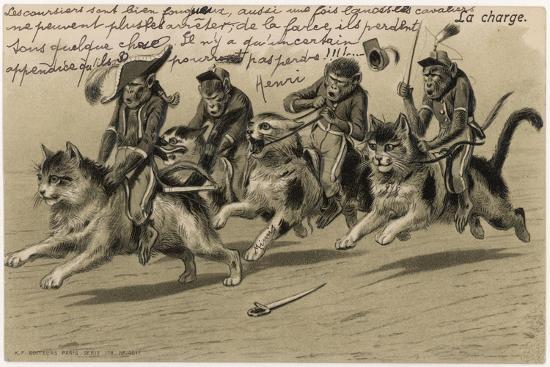 Les coursiers sont bien fougueux, aussi une fois lancés les cavaliers
ne peuvent plus les arrêter, de la farce, ils perdent
tous quelque chose. Il n'y a qu'un certain
appendice qu'ils pourront pas perdre !!!
Henri
La charge.
K.F. EDITEURS PARIS, SERIE